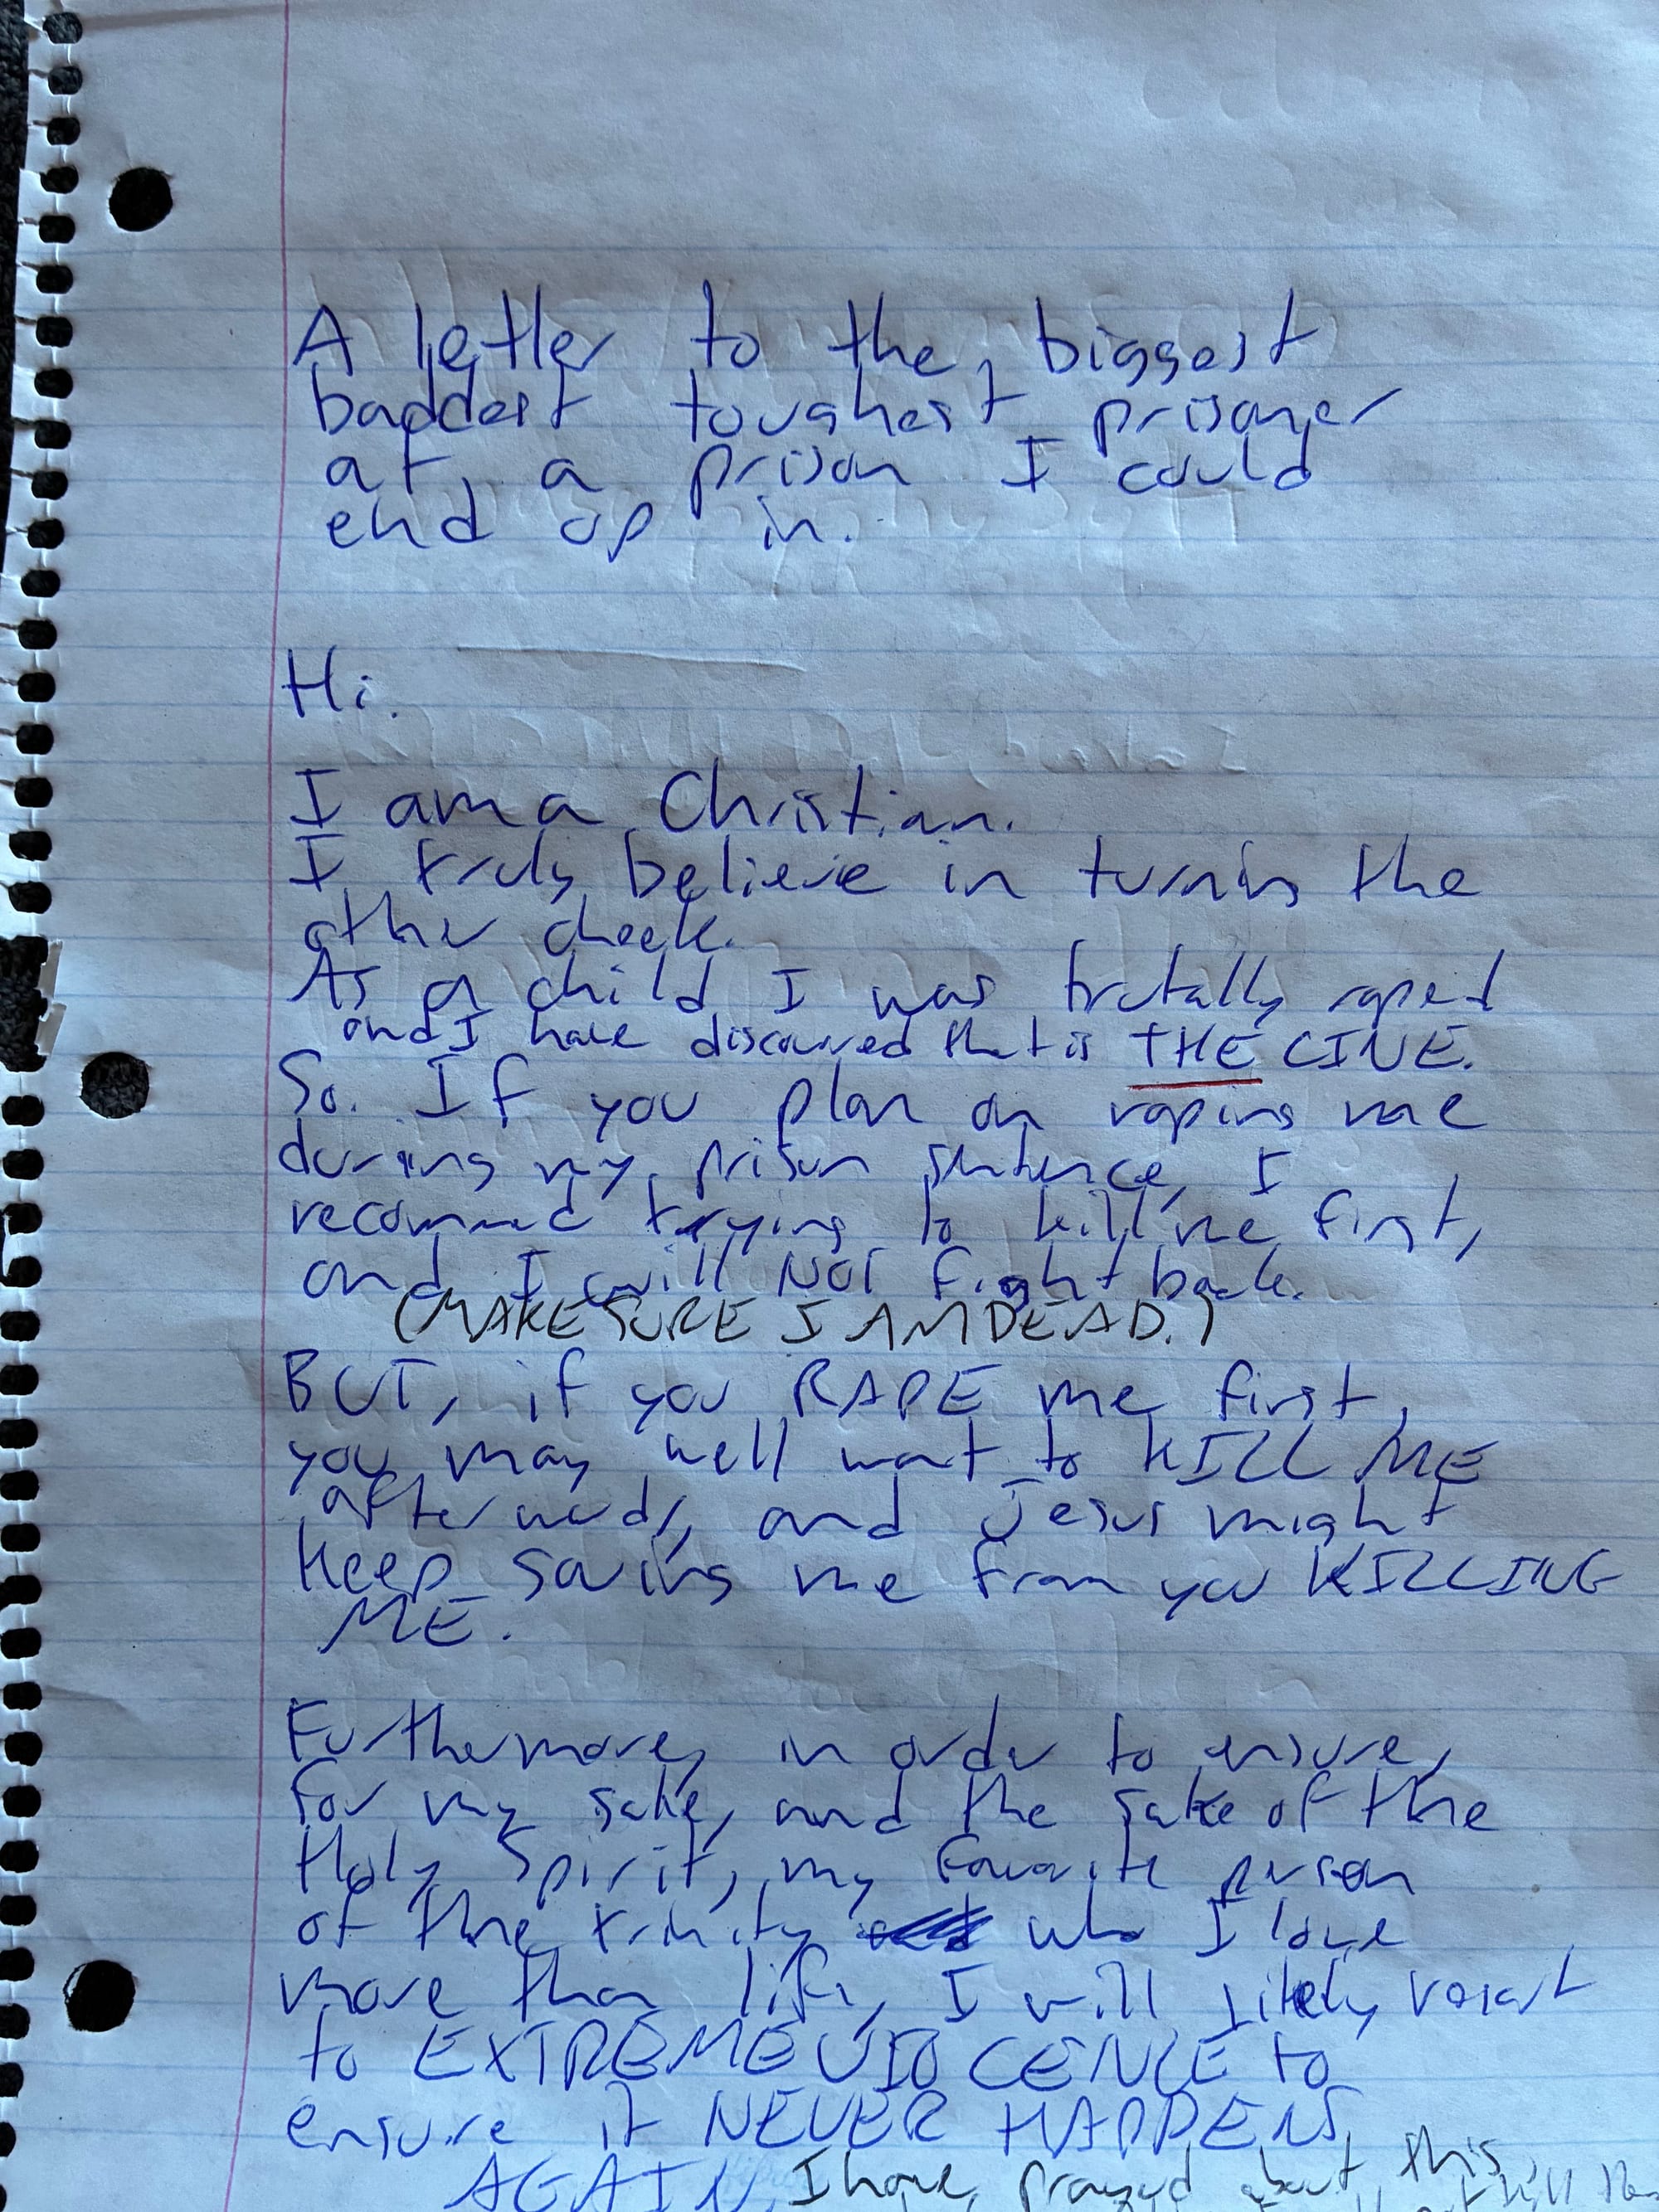 A letter to the biggest
baddest toughest prisoner
at a prison I could
end up in.
Hi.
I am a Christian.
I truly believe in turning the
other cheek.
As a child I was brutally raped
and I have discovered that is THE LINE.
So. If you plan on raping me
during my prison sentence, I
recommend trying to kill me first,
and I will NOT fight back.
(MAKE SURE I AM DEAD.)
BUT, if you RAPE me first,
you may well want to KILL ME
afterwards, and Jesus might
keep saving me from you KILLING
ME.
Furthermore, in order to ensure,
for my sake, and the sake of the
Holy Spirit, my favorite person
of the trinity who I love
more than life, I will likely resort
to EXTREME VIOLENCE to
ensure it NEVER HAPPENS
AGAIN. I have prayed about this